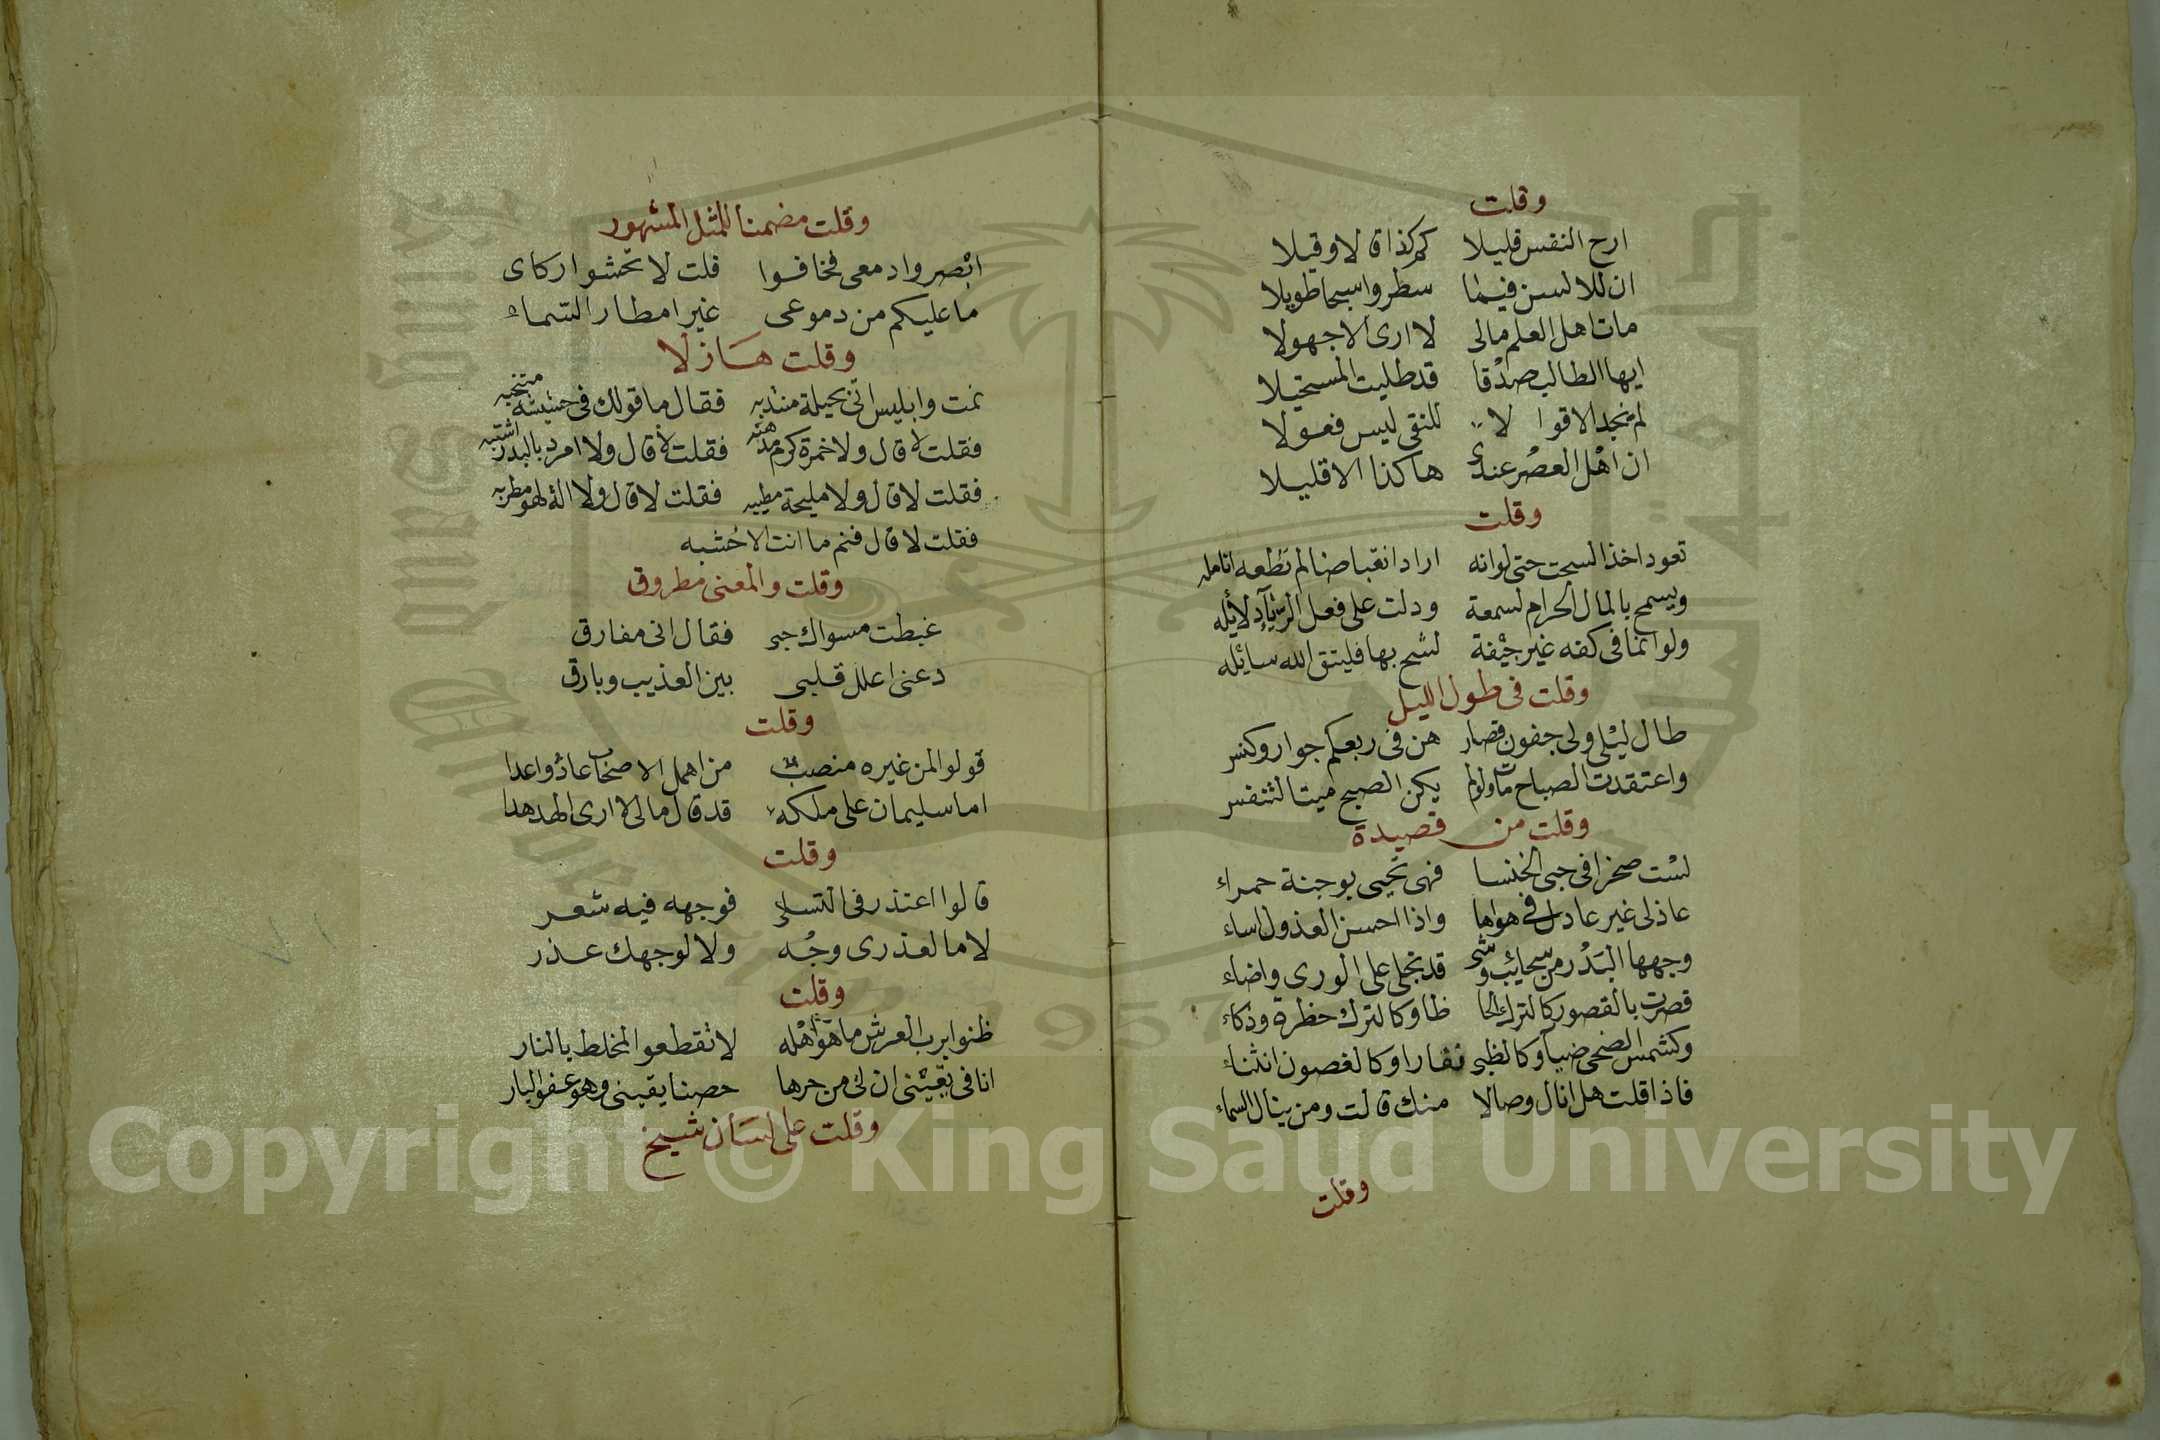 وقلت
ارح النفس قليلا كم كذا قالا وقيلا
ان للالسن فيما سطروا سبحا طويلا
مات اهل العلم مالى لا ارى الا جهولا
ايها الطالب صدقا قد طلبت المستحيلا
لم نجد الا قوالا للتقى ليس فعولا
ان اهل العصر عندى هاكذا الا قليلا
وقلت
تعود اخذ السحت حتى لو انه اراد انقباضا لم تطعه انامله
ويسمح بالمال الحرام لسمعة ودلت على فعل الريآء دلائله
ولو انما فى كفه غير جيفة لشح بها فليتق الله سائله
وقلت فى طول الليل
طال ليلى ولى جفون قصار هن فى ربعكم جوار وكنس
واعتقدت الصباح مات ولو لم يكن الصبح ميتا لتنفس
وقلت من قصيدة
لست صخرا فى حبى الخنسا فهى تحيى بوجنة حمراء
عاذلى غير عادل فى هواها واذا احسن العذول اساء
وجهها البدر من سحائب وشى قد تجلى على الورى واضاء
قصرت بالقصور كالترك الحا ظا وكالترك خطرة وذكاء
وكشمس الضحى ضيآ وكالظبى نفارا وكالغصون انثناء
فاذا قلت هل انال وصالا منك قالت ومن ينال السماء
وقلت
وقلت مضمنا للمثل المشهور
ابصروا دمعى فخافوا قلت لا تخشوا ركاى
ما عليكم من دموعى غير امطار السماء
وقلت هازلا
نمت وابليس اتى بحيلة منتدبه فقال ما قولك فى حشيشة منتخبه
فقلت لا قال ولا خمرة كرم مذهبه فقلت لا قال ولا امرد بالبدر اشتبه
فقلت لا قال ولا مليحة مطيبه فقلت لا قال ولا الة لهو مطربه
فقلت لا قال فنم ما انت الا خشبه
وقلت والمعنى مطروق
غبطت مسواك حبى فقال انى مفارق
دعنى اعلل قلبى بين العذيب وبارق
وقلت
قولوا لمن غيره منصب من اهمل الاصحاب عادوا عدا
اما سليمان على ملكه قد قال مالى لا ارى الهدهدا
وقلت
قالوا اعتذر فى التسلى فوجهه فيه شعر
لا ما لعذرى وجه ولا لوجهك عذر
وقلت
ظنوا برب العرش ما هو اهله لا تقطعوا لمخلط بالنار
انا فى يقينى ان لى من حرها حصنا يقينى وهو عفو البار
وقلت على لسان شيخ
Copyright © King Saud University
1957